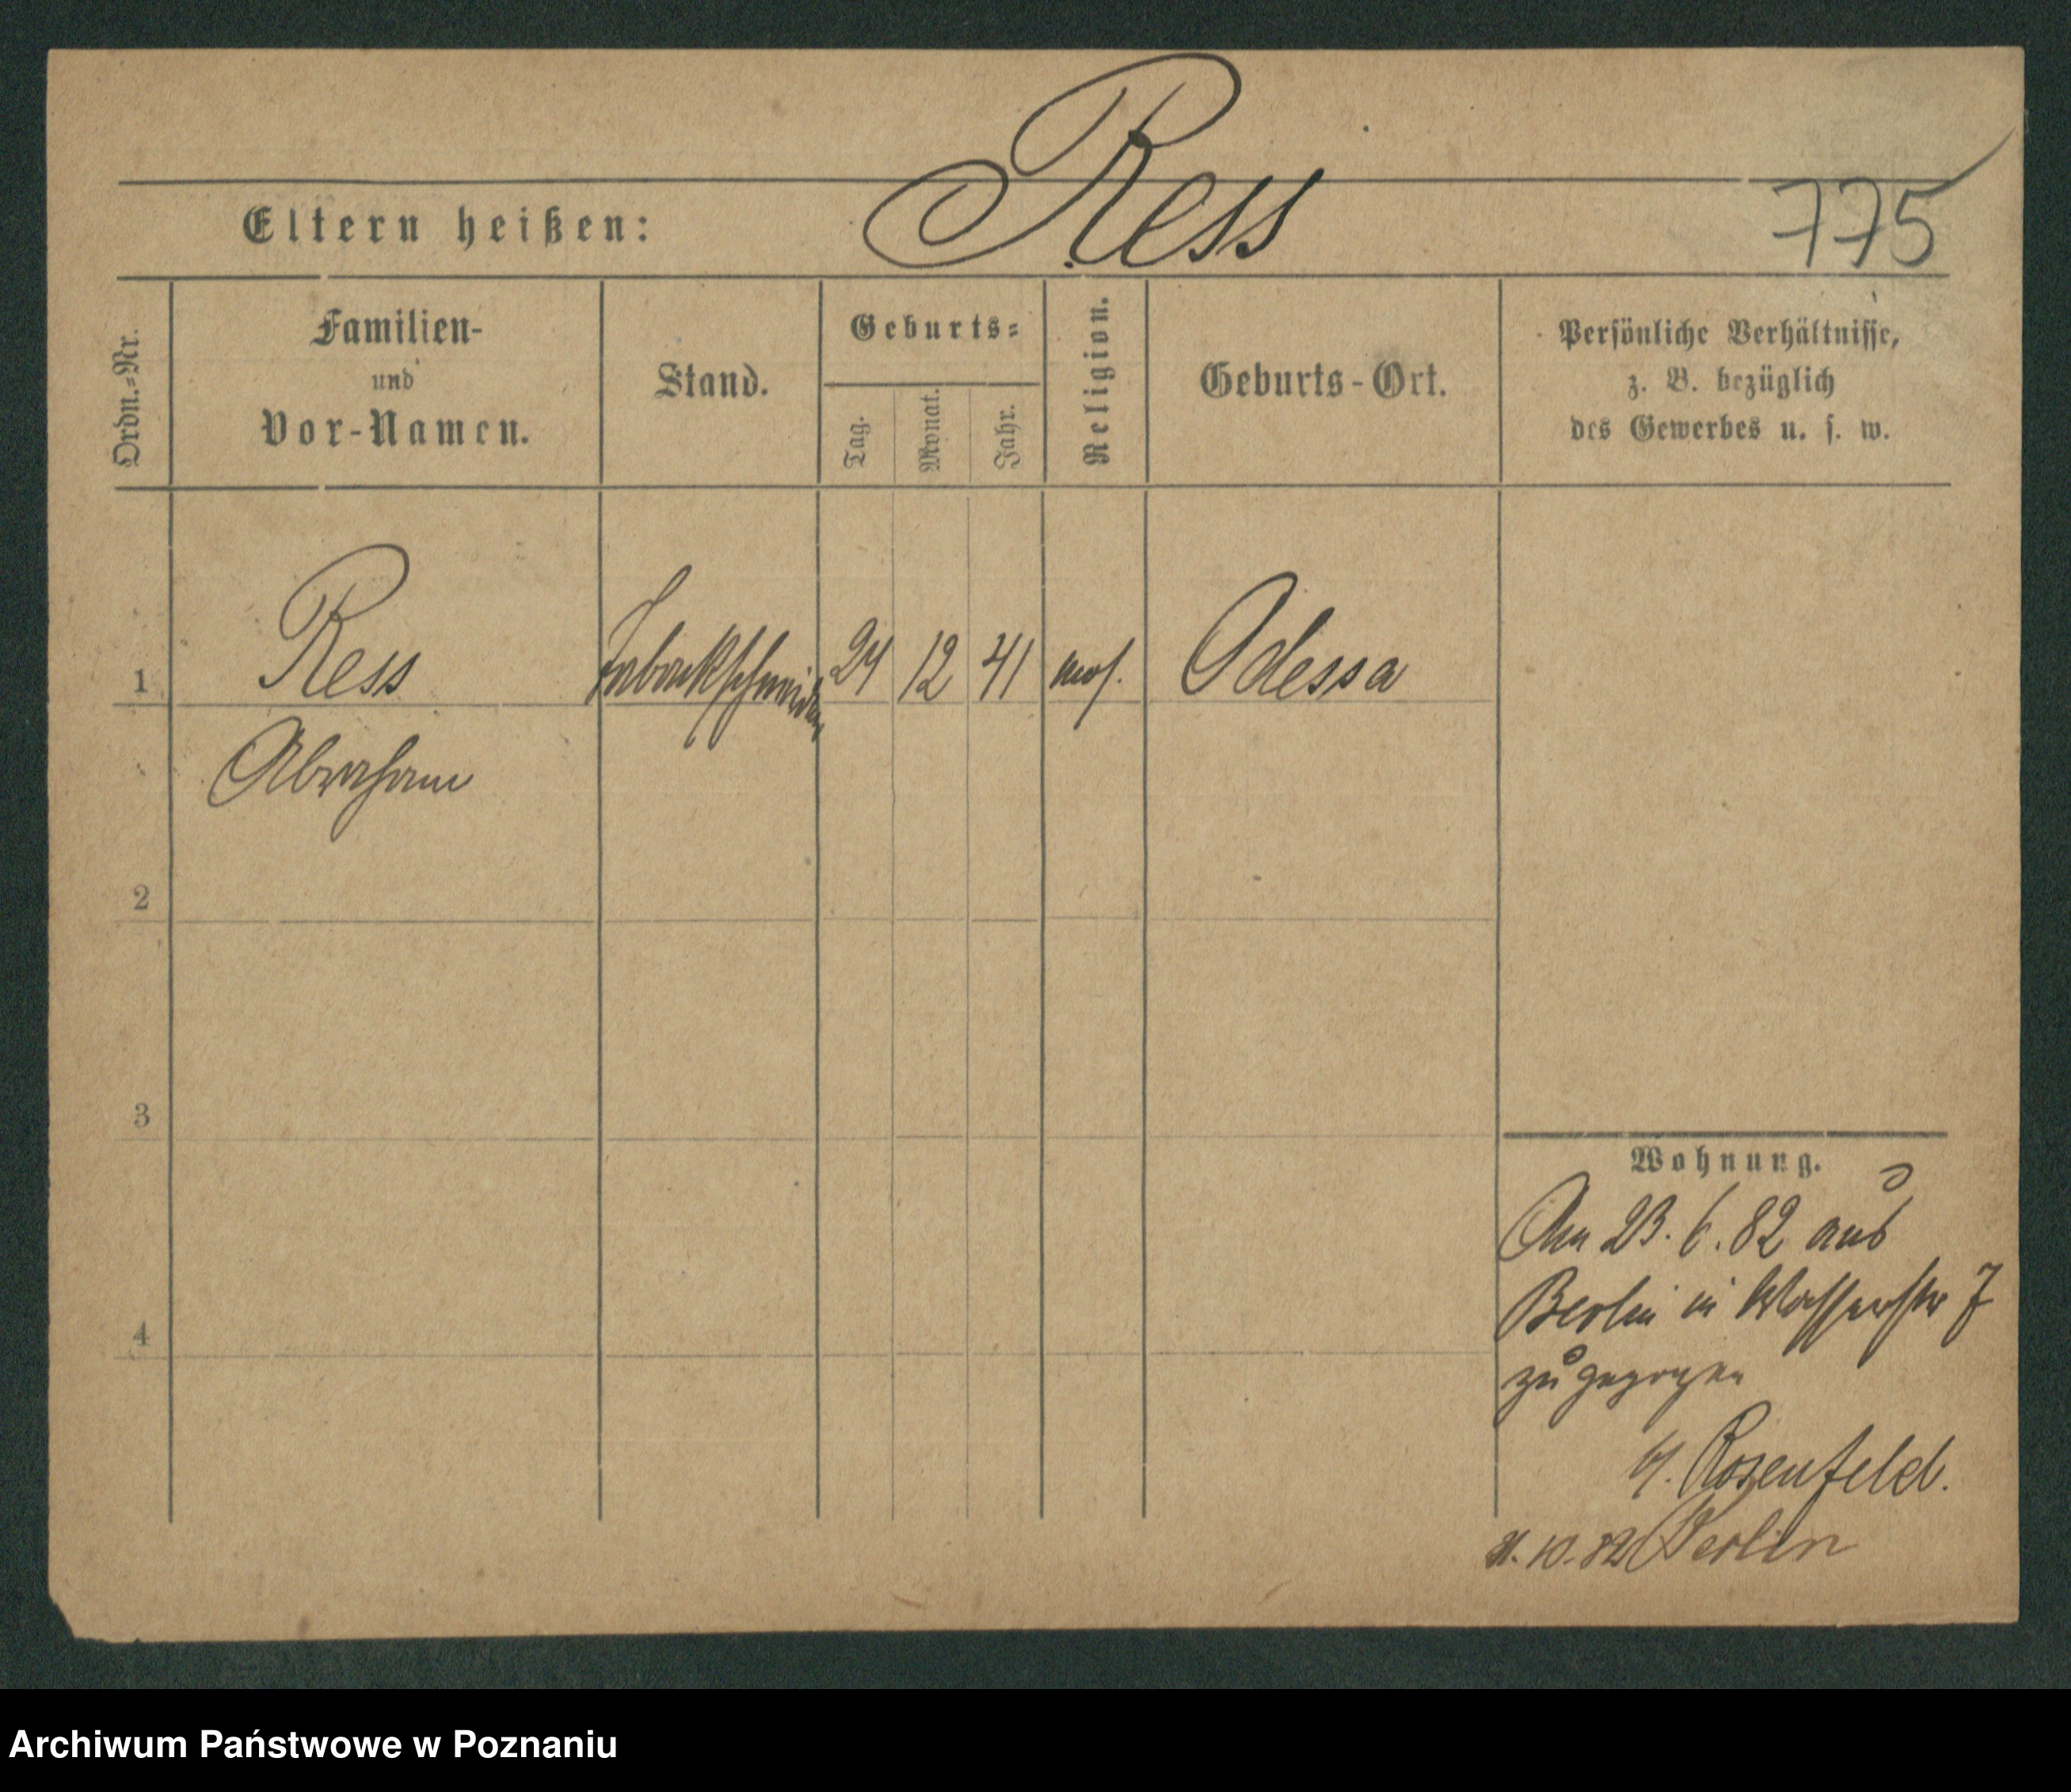 Ress
Eltern heißen:
775
Ordn.=Nr.
Familien-
und
Vor-Namen.
Stand.
Geburts=
Tag.
Monat.
Jahr.
Religion.
Geburts-Ort.
Persönliche Verhältnisse,
z. B. bezüglich
des Gewerbes u. s. w.
1
Ress
Tabackschneider
24
12
41
mos.
Odessa
Abraham
2
3
4
Wohnung.
Am 23. 6. 82 aus
Berlin in Wasserstr 7
zugezogen
Rosenfeld.
10. 82 Berlin
Archiwum Państwowe w Poznaniu